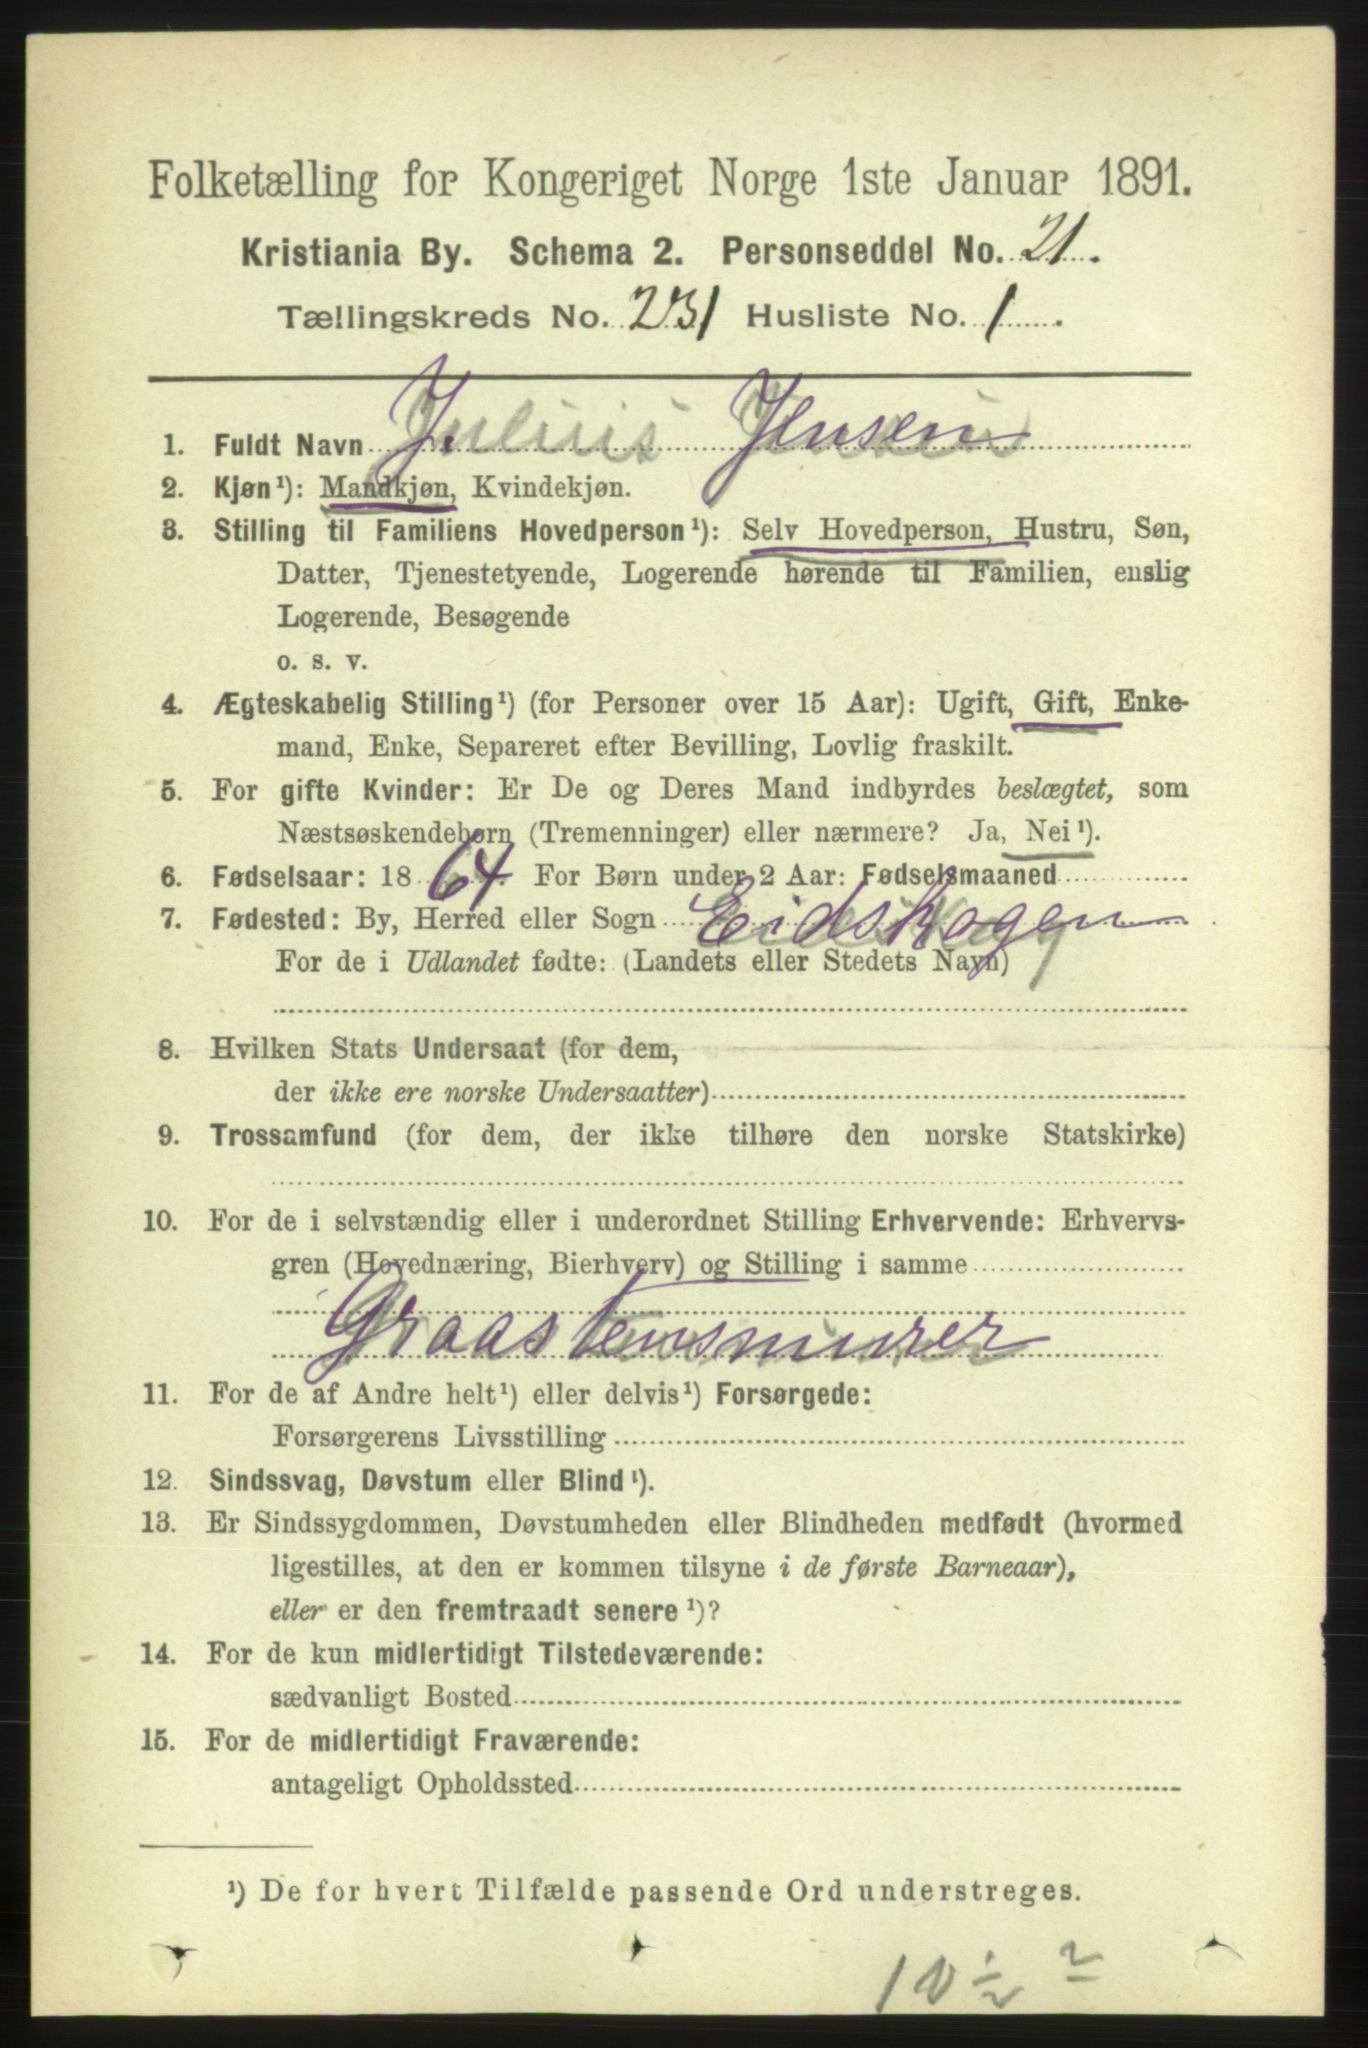 Folketælling for Kongeriget Norge 1ste Januar 1891.
Kristiania By. Schema 2. Personseddel No. 21.
Tællingskreds No. 231 Husliste No. 1.
1. Fuldt Navn J. Julius Jensen
2. Kjøn¹): Mandkjøn, Kvindekjøn.
3. Stilling til Familiens Hovedperson¹): Selv Hovedperson, Hustru, Søn,
Datter, Tjenestetyende, Logerende hørende til Familien, enslig
Logerende, Besøgende
o. s. v.
4. Ægteskabelig Stilling¹) (for Personer over 15 Aar): Ugift, Gift, Enke-
mand, Enke, Separeret efter Bevilling, Lovlig fraskilt.
5. For gifte Kvinder: Er De og Deres Mand indbyrdes beslægtet, som
Næstsøskendebørn (Tremenninger) eller nærmere? Ja, Nei¹).
6. Fødselsaar: 1864. For Børn under 2 Aar: Fødselsmaaned
7. Fødested: By, Herred eller Sogn Eidskogen
For de i Udlandet fødte: (Landets eller Stedets Navn)
8. Hvilken Stats Undersaat (for dem,
der ikke ere norske Undersaatter)
9. Trossamfund (for dem, der ikke tilhøre den norske Statskirke)
10. For de i selvstændig eller i underordnet Stilling Erhvervende: Erhvervs-
gren (Hovednæring, Bierhverv) og Stilling i samme
Graastensmurer
11. For de af Andre helt¹) eller delvis¹) Forsørgede:
Forsørgerens Livsstilling
12. Sindssvag, Døvstum eller Blind¹).
13. Er Sindssygdommen, Døvstumheden eller Blindheden medfødt (hvormed
ligestilles, at den er kommen tilsyne i de første Barneaar),
eller er den fremtraadt senere¹)?
14. For de kun midlertidigt Tilstedeværende:
sædvanligt Bosted
15. For de midlertidigt Fraværende:
antageligt Opholdssted
¹) De for hvert Tilfælde passende Ord understreges.